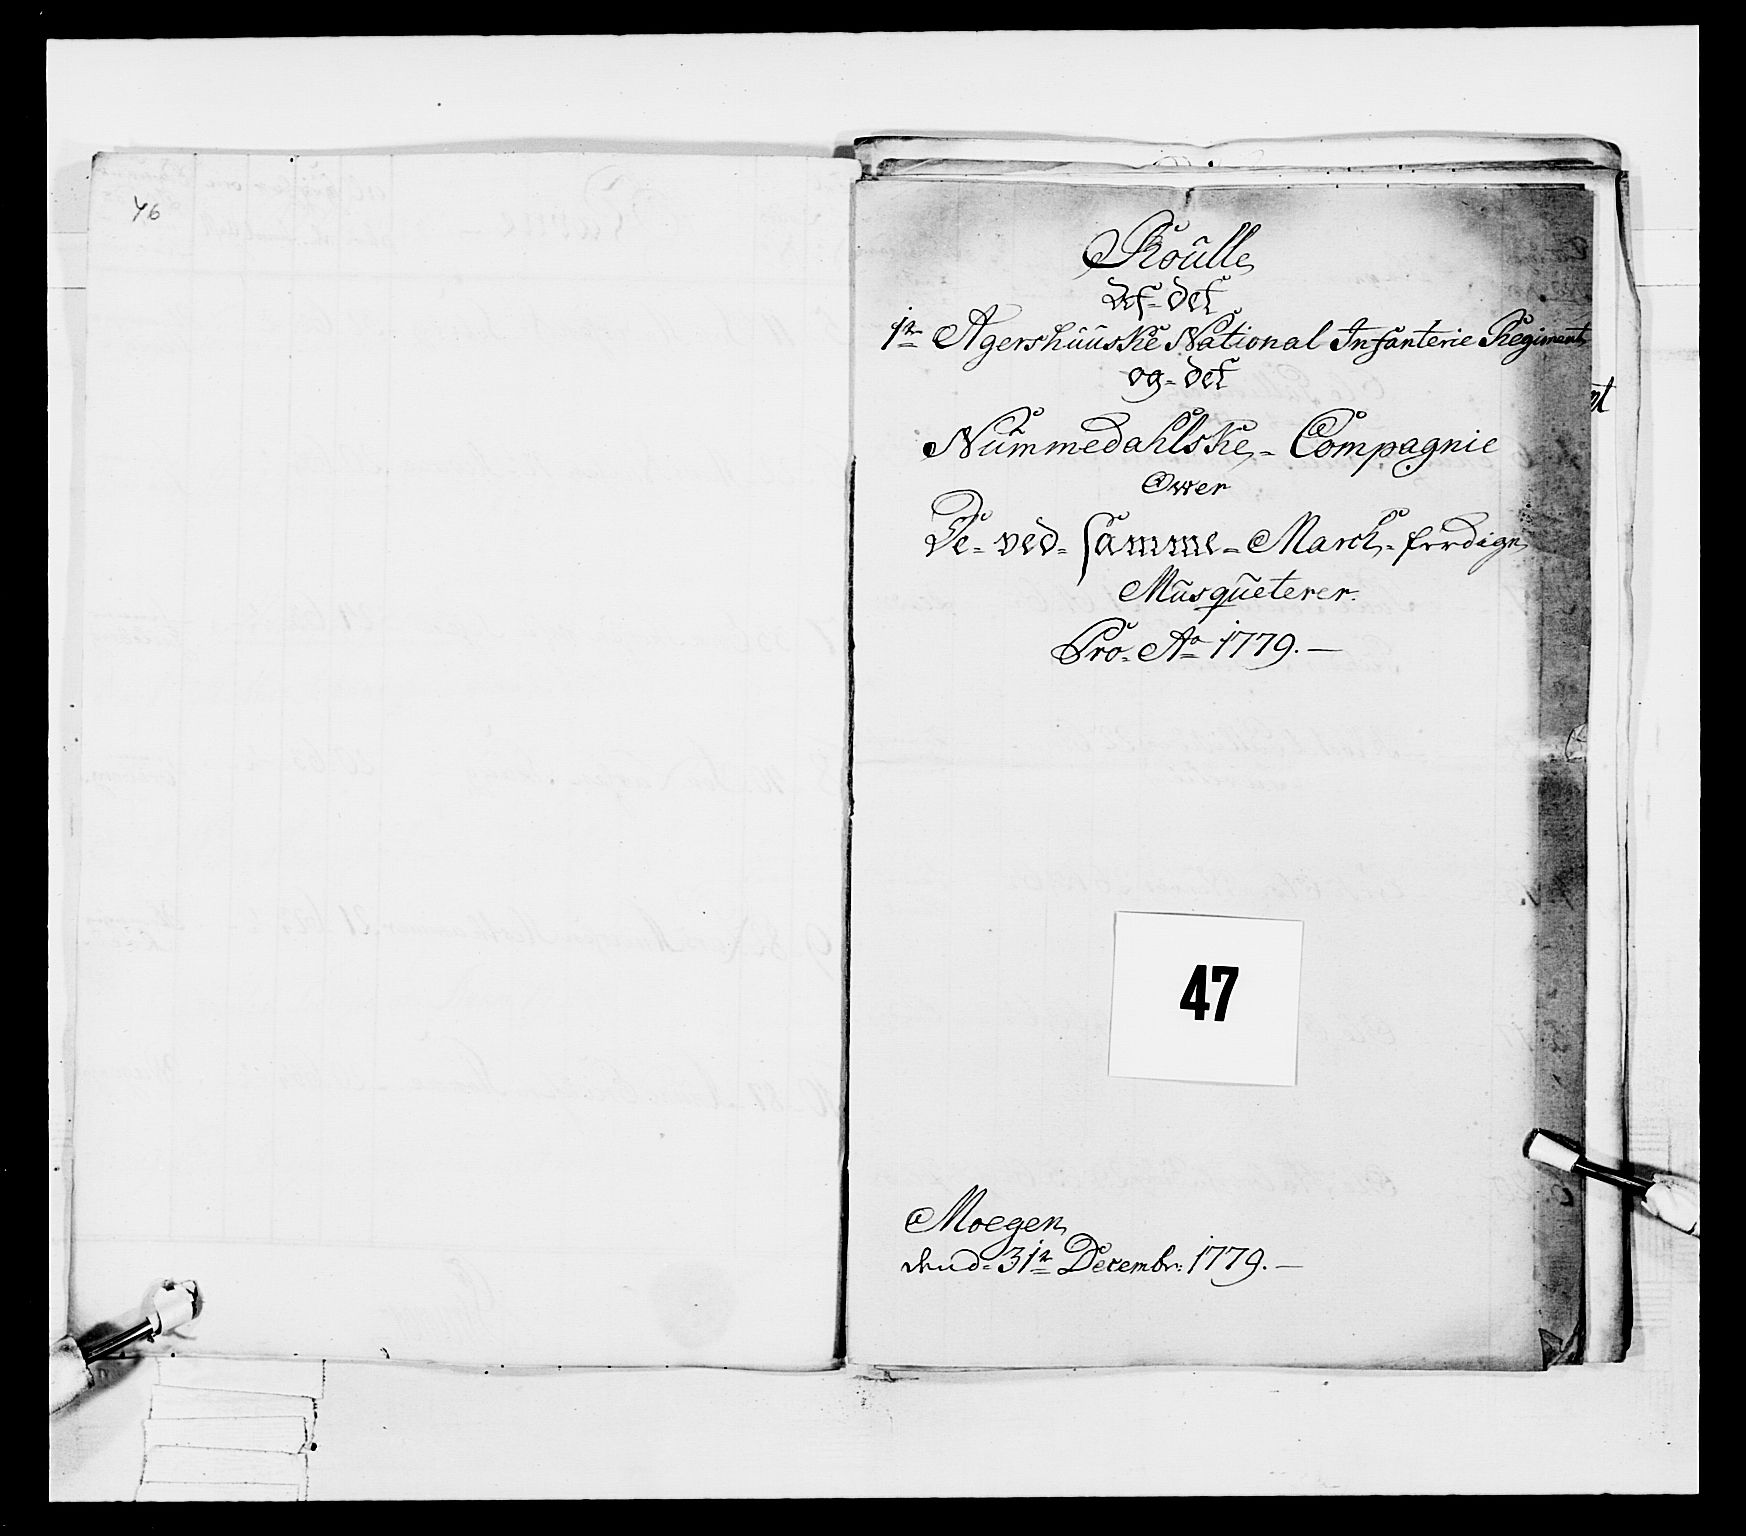 46
Roulle
Af- det
1te Agershuuske National Infanterie Regiment
og- det
Nummedahlske- Compagnie
Over
De- ved- samme- March- ferdige
Musqueterer.
Pro. Ao 1779.—
47
Moegen
dend- 31te Decembr: 1779.—